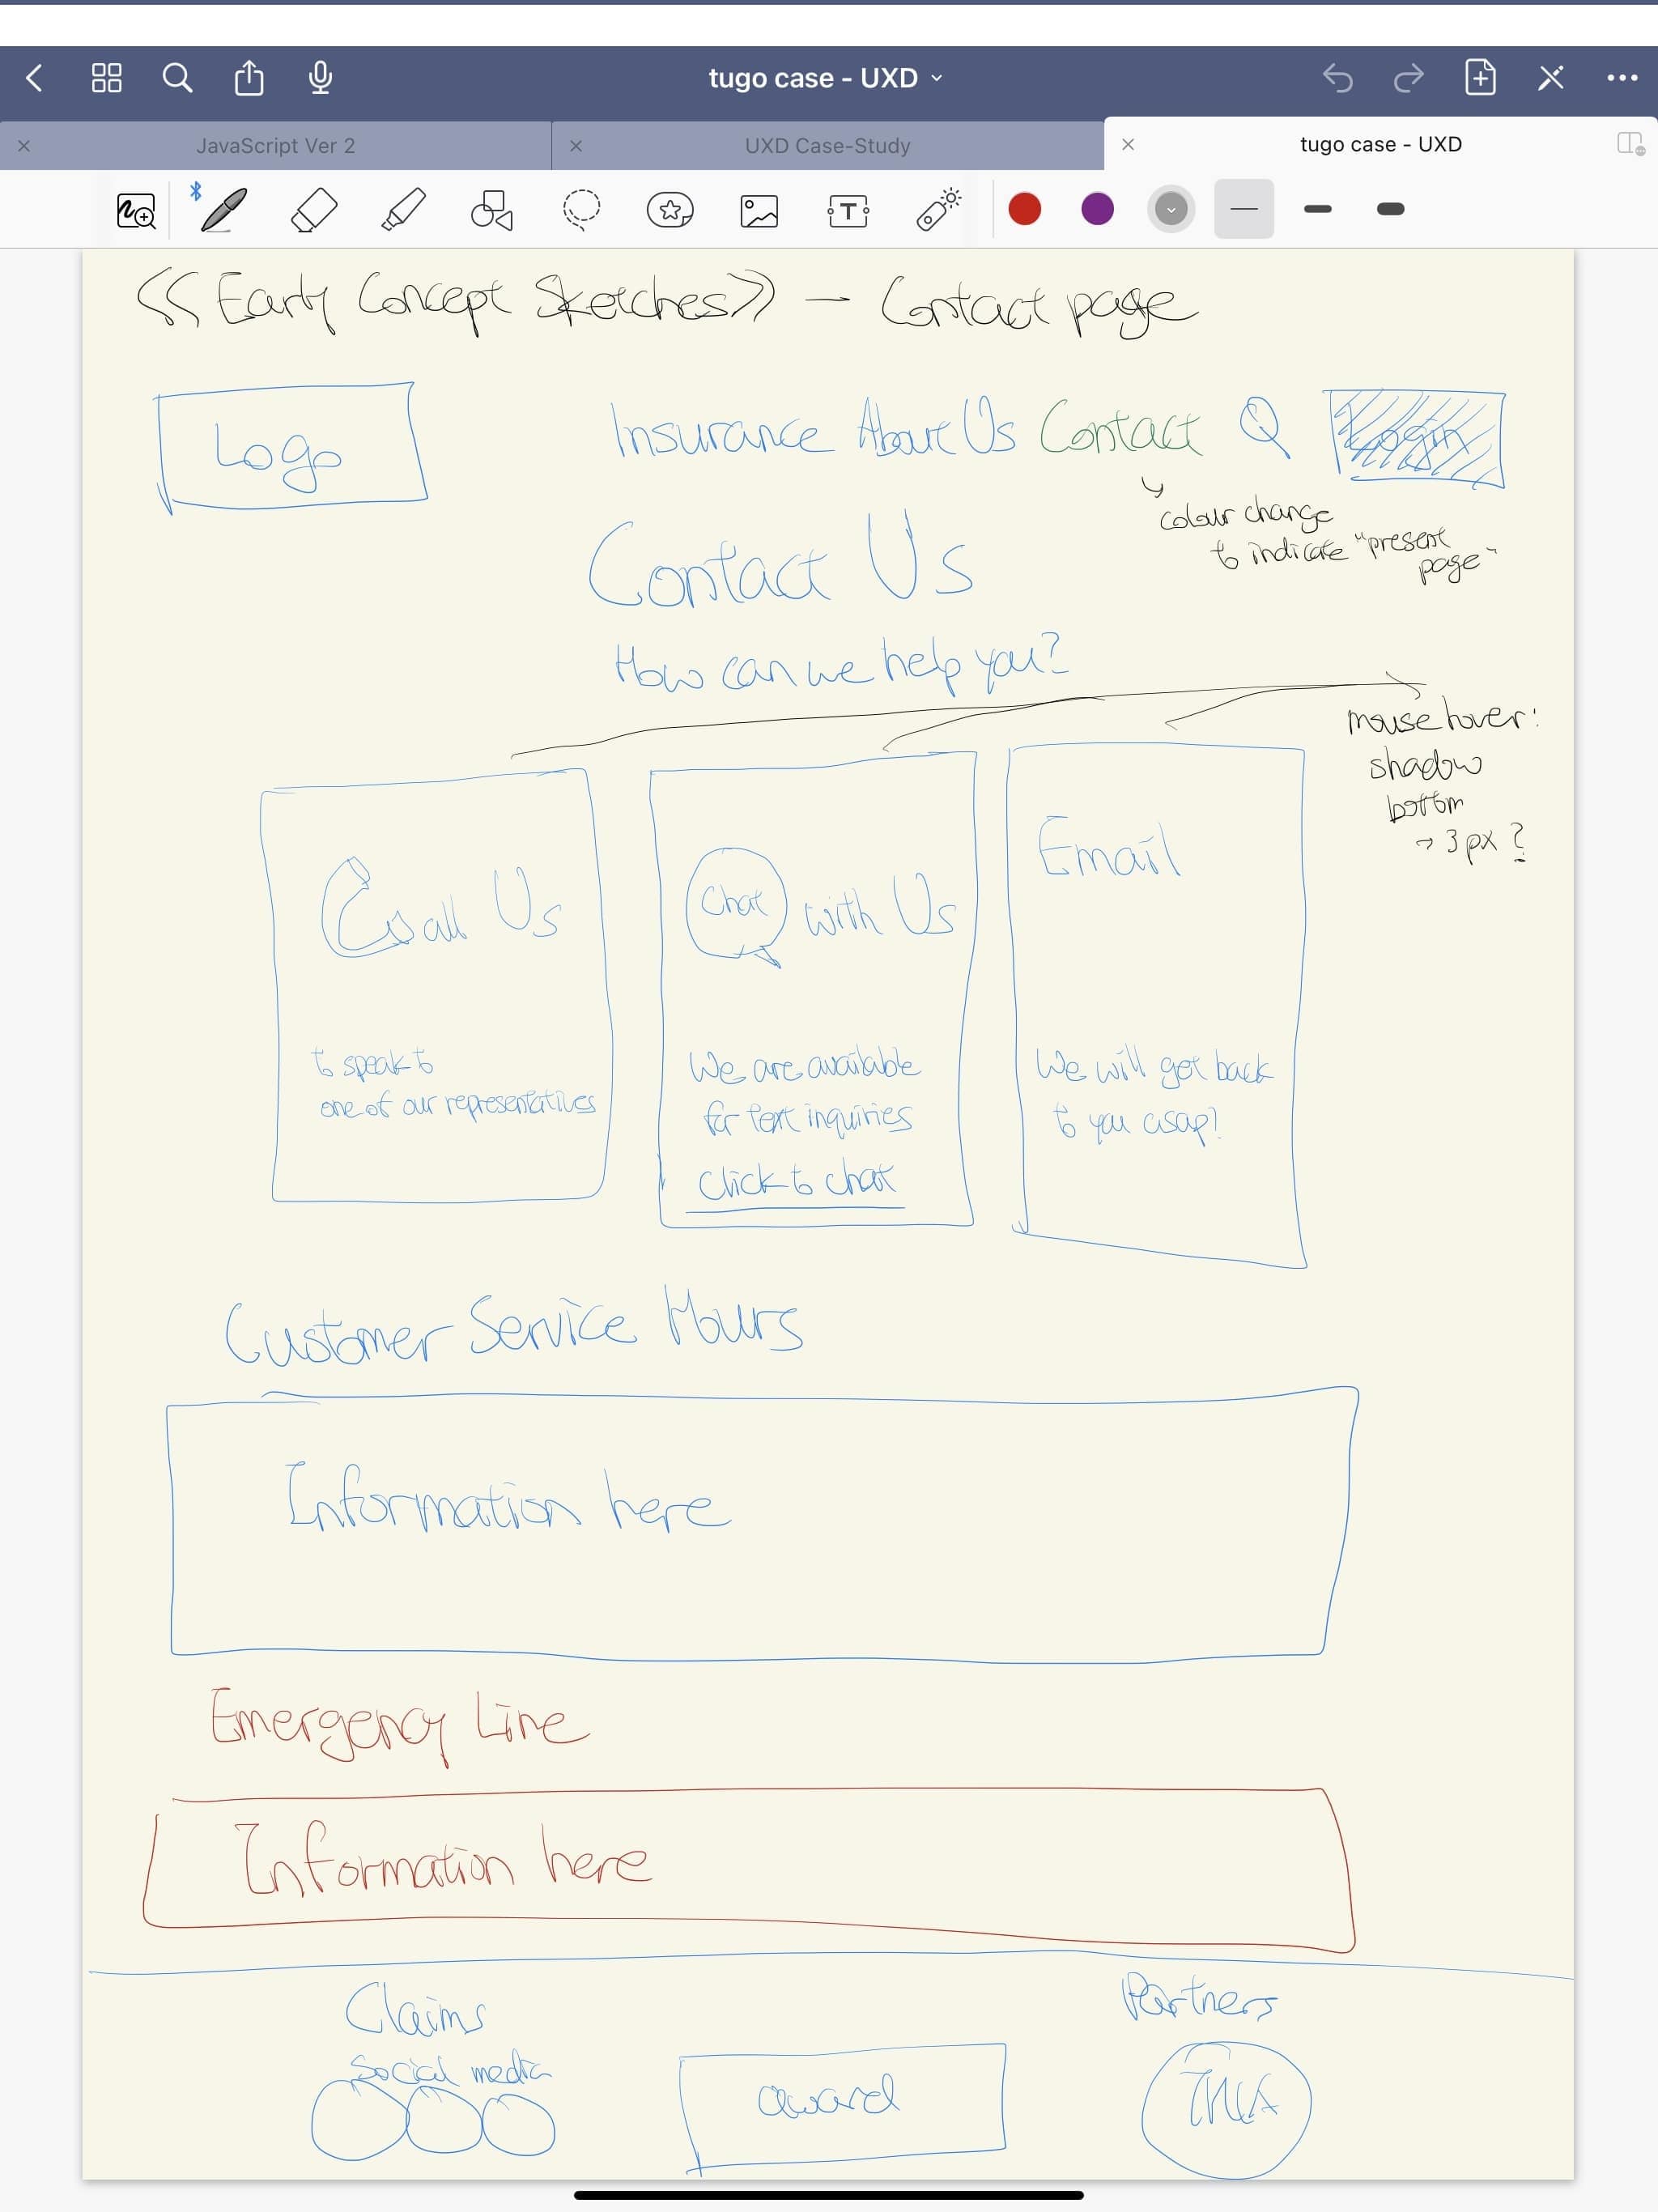 tugo case - UXD
JavaScript Ver 2
UXD Case-Study
tugo case - UXD
<<Early Concept Sketches>> - Contact page
Logo
Insurance About Us Contact
Login
colour change
to indicate "present
page"
Contact Us
How can we help you?
mouse hover:
shadow
bottom
→ 3px?
Call Us
to speak to
one of our representatives
Chat with Us
We are available
for text inquiries
Click to chat
Email
We will get back
to you asap!
Customer Service Hours
Information here
Emergency Line
Information here
Claims
Social media
award
Partners